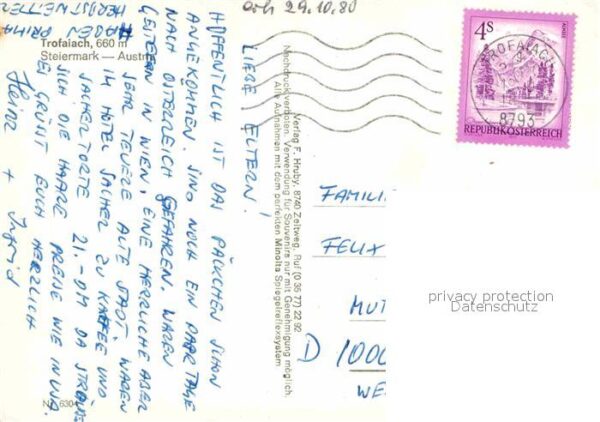 Och 29.10.80
Trofaiach, 660 m
Steiermark — Austria
LIEBE ELTERN!
HOFFENTLICH IST DAS PÄCKCHEN SCHON
ANGEKOMMEN. SIND NOCH EIN PAAR TAGE
NACH ÖSTERREICH GEFAHREN. WAREN
GESTERN IN WIEN, EINE HERRLICHE ABER
SEHR TEUERE ALTE STADT. WAREN
IM HOTEL SACHER ZU KAFFEE UND
SACHERTORTE 21.- DM DA STRÄUBEN
SICH DIE HAARE PREISE WIE IN USA.
ES GRÜßT EUCH HERZLICH
Heinz + Ingrid
HABEN PRIMA
HERBSTWETTER
Verlag F. Hruby, 8740 Zeltweg, Ruf (0 35 77) 22 92
Nachdruck verboten. Verwendung für Souvenirs nur mit Genehmigung möglich.
Alle Aufnahmen mit dem perfekten Minolta Spiegelreflexsystem
4S
REPUBLIK ÖSTERREICH
TROFAIACH
8793
FAMILI
FELIX
MUT
D 1000
WE
privacy protection
Datenschutz
Nr. 6304